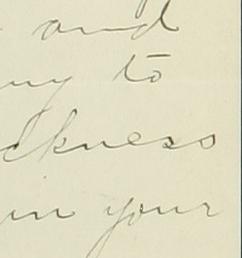 and
to
ckness
in your